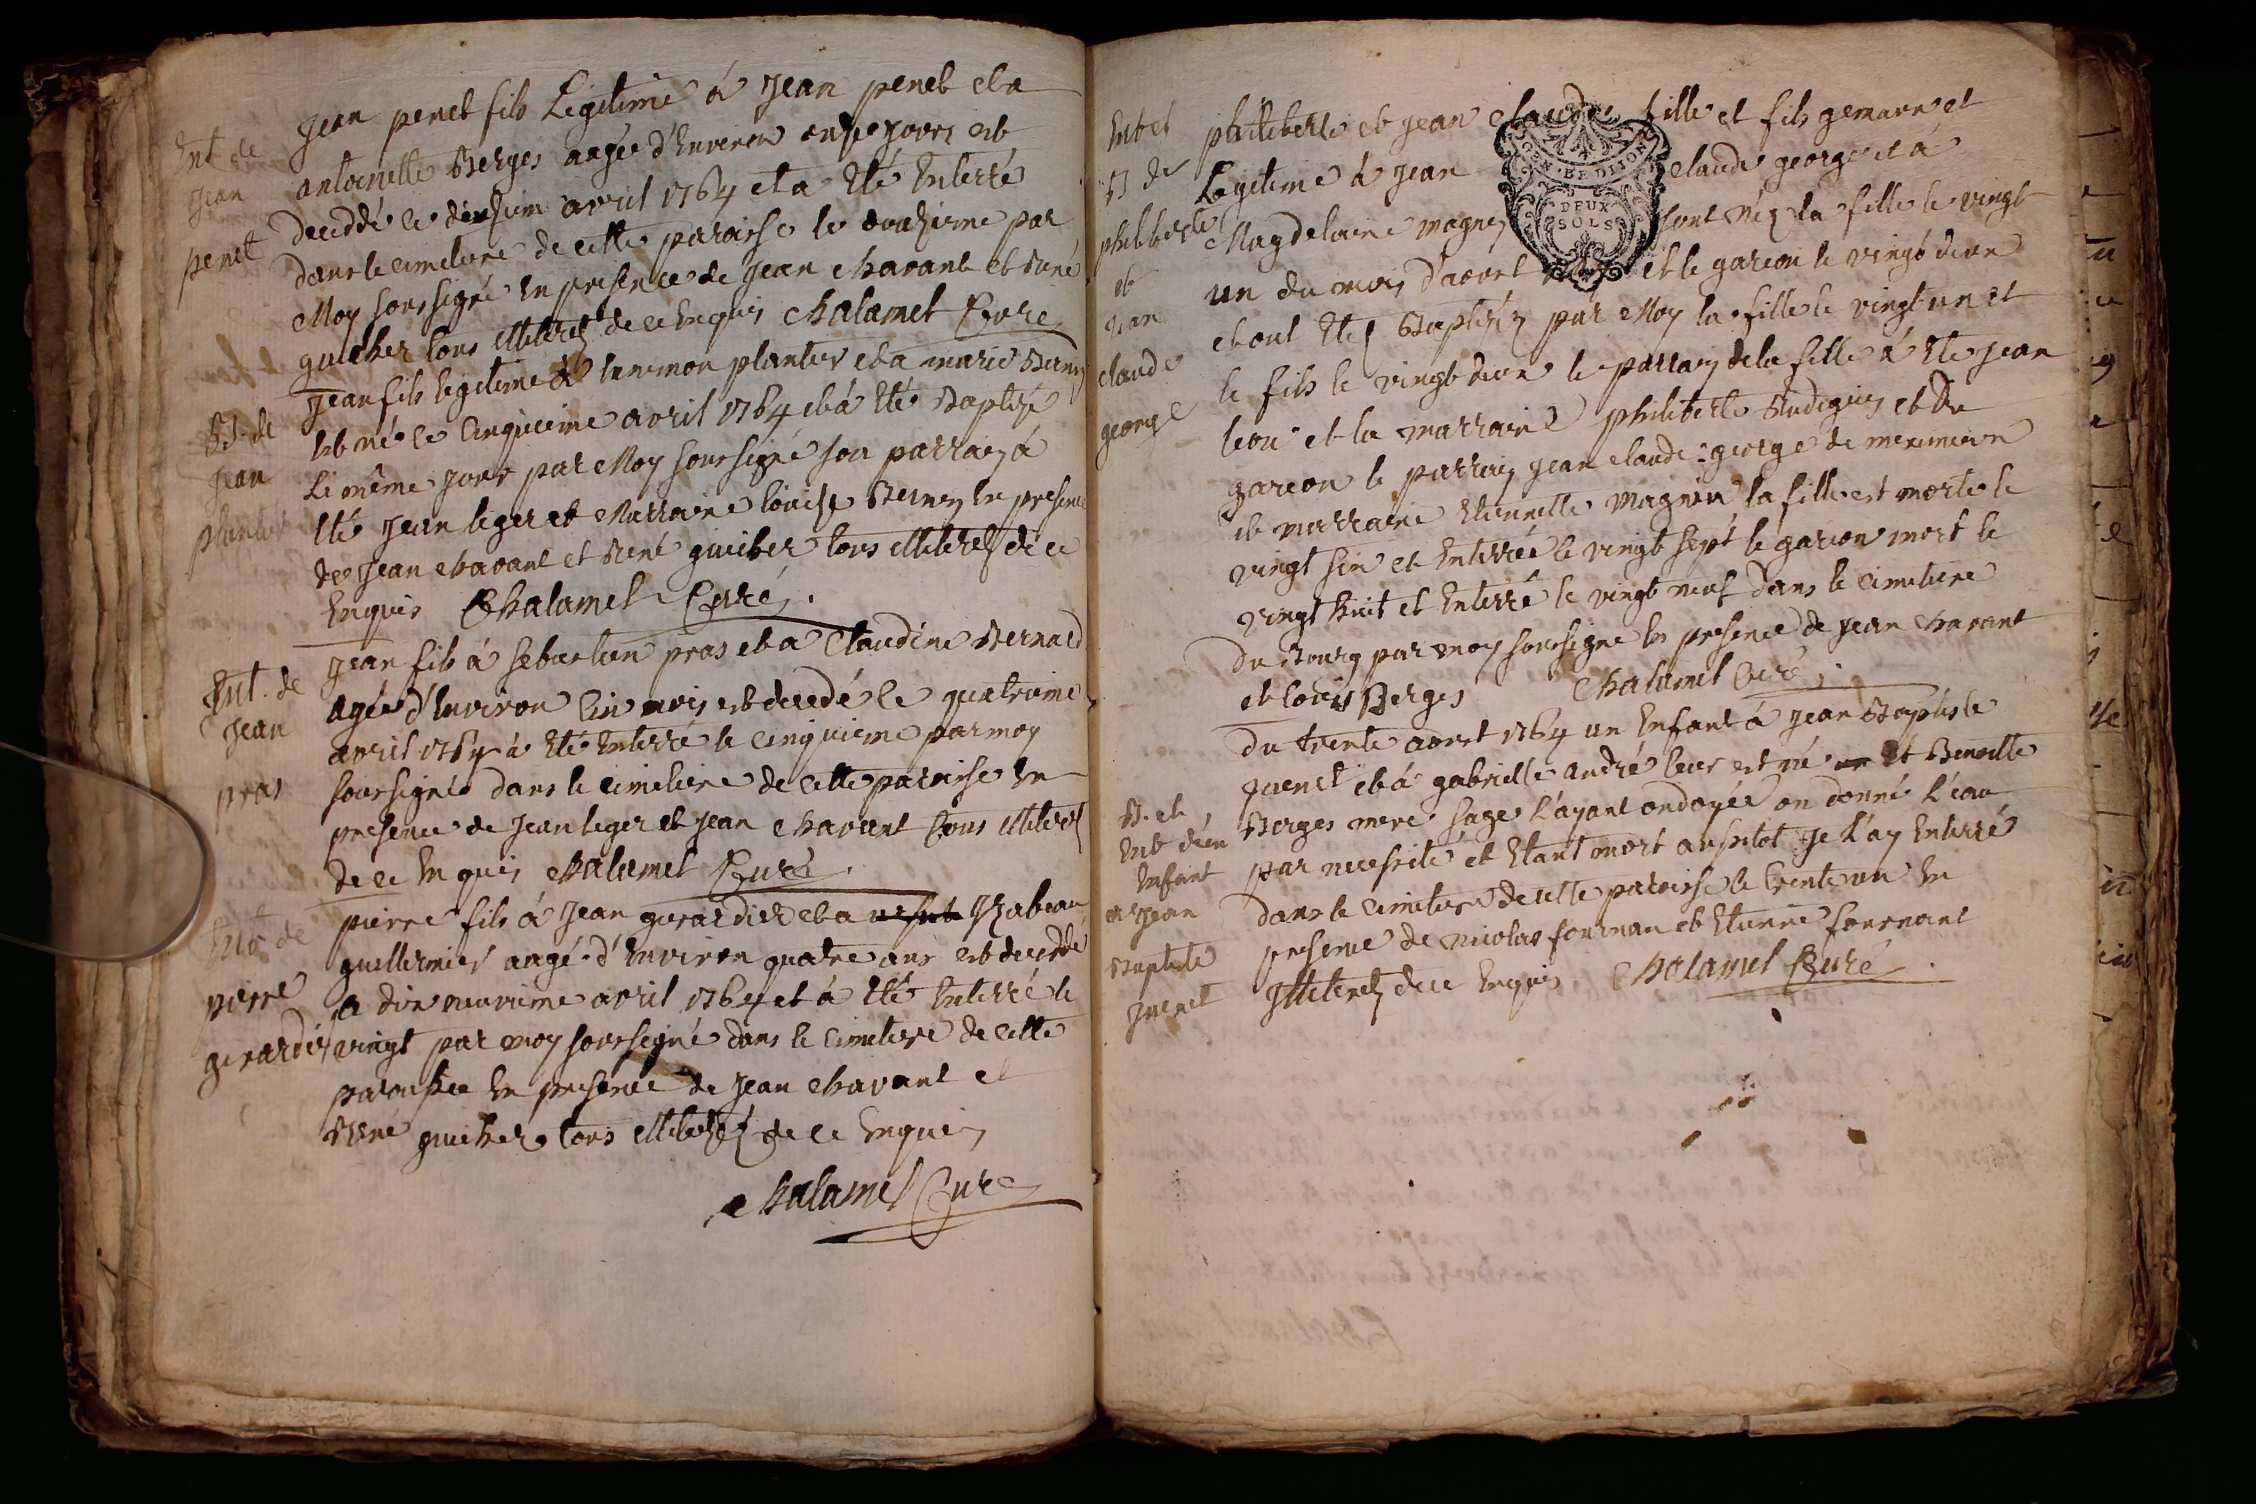 Ent de
Jean
penet
Jean penet fils Légitime á Jean penet et a
antoinette Berges aagée d'Environ onze Jours est
decedde le dixhuim avril 1764 et a Eté Enterré
dans le cimetiere de cette paroisse le par
Moy soussigné En presence de Jean chavant et René
guicher tous illiterez de ce Enquis Chalamel Curé
B. de
Jean
plantier
Jean fils legitime á Annimon plantier et a marie Berne
est né le cinquieme avril 1764 et á Eté Baptizé
Le même Jour par Moy soussigné son parrain á
Eté Jean leger et Marraine loüise Bernez En presence
de Jean chavant et René guicher tous illiterez de ce
Enquis Chalamel Curé.
Ent. de
Jean
pras
Jean fils á sebastien pras et a Claudine Bernard
agée d'Environ cin mois est decedé le quatrieme
avril 1764 á Eté Enterré le cinquieme par moy
soussigné dans le cimetiere de cette paroisse En
presence de Jean leger et Jean chavant tous illiterez
de ce Enquis Chalamel Curé.
Ent de
pierre
gerardier
pierre fils á Jean gerardier et a Izabeau
guillermier aagé d'Environ quatre ans est decedde
le dix neuvieme avril 1764 et á Eté Enterré le
vingt par moy soussigné dans le cimetiere de cette
paroisse En presence de Jean chavant et
René guicher tous illiterez de ce Enquis
Chalamel Curé
Ent et
B de
philiberte
et
Jean
claude
george
philiberte et Jean claude fille et fils gemaux et
Legitime á Jean claude george et á
Magdelaine magnez sont néz la fille le vingt
un du mois d'aoust et le garcon le vingt deux
et ont Etez Baptizez par Moy la fille le vingt un et
le fils le vingt deux le parrain de la fille á Eté Jean
leon et la marraine philiberte et du
garcon le parrain Jean claude george de
et marraine Etiennette magnin la fille est morte le
vingt six et Enterrée le vingt sept le garcon mort le
vingt huit et Enterré le vingt neuf dans le cimetiere
du Bourg par moy soussigné En presence de Jean chavant
et loüis Berges Chalamel Curé.
B. et
Ent d'un
Enfant
a Jean
Baptiste
Juenet
Du trente aoust 1764 un Enfant á Jean Baptiste
Juenet et á gabrielle andré leur est né et Benoitte
Berges mere sage L'ayant ondoyée ou donné L'eau
par necessité et Etant mort aussitot Je L'ay Enterré
dans le cimetiere de cette paroisse le trente un En
presence de nicolas fournan et Etienne fournant
Illiterez de ce Enquis Chalamel Curé.
GEN. DE DIJON
DEUX
SOLS